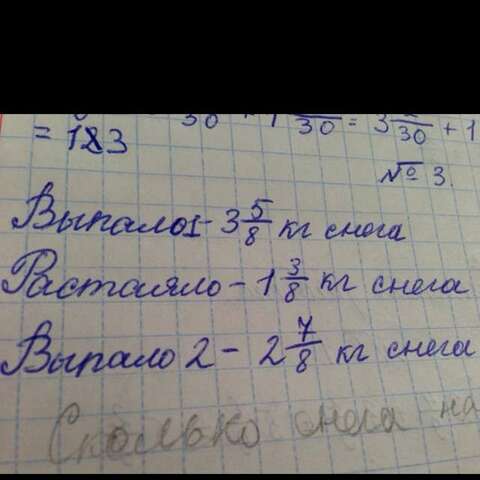 30 + 1 30 = 3 30 + 1
= 123
№ 3.
Выпало1- 3 5/8 кг снога
Растаяло - 1 3/8 кг снега
Выпало 2 - 2 7/8 кг снега
Сколько снега на